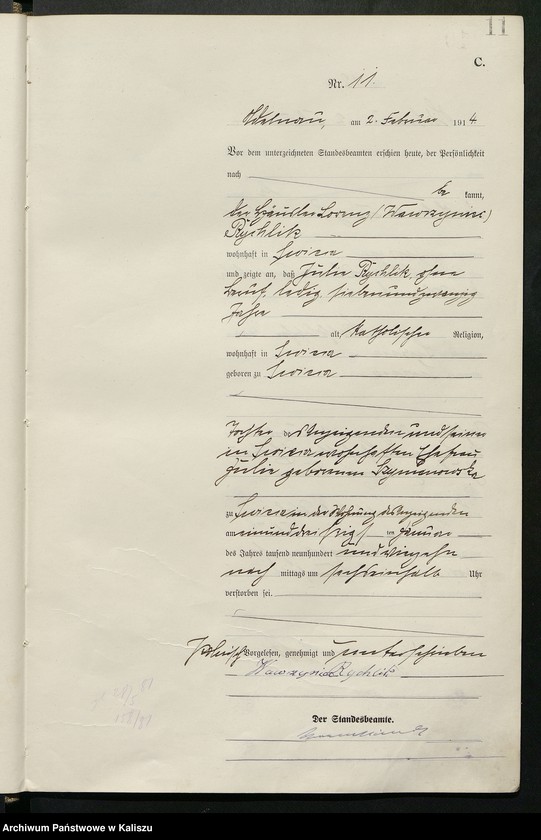 11
C.
Nr. 11.
Adelnau, am 2. Februar 1914
Vor dem unterzeichneten Standesbeamten erschien heute, der Persönlichkeit
nach
be kannt,
der Häusler Lorenz (Wawrzyniec)
Rychlik
wohnhaft in
und zeigte an, daß Julie Rychlik, ohne
Beruf, ledig, siebenundzwanzig
Jahre
alt, katholischer Religion,
wohnhaft in
geboren zu
Tochter des Anzeigenden und seiner
in wohnhaften Ehefrau
Julie geborenen Szymanowska
zu in der Wohnung des Anzeigenden
am einunddreißigsten Januar
des Jahres tausend neunhundert und vierzehn
nach mittags um sechseinhalb Uhr
verstorben sei.
Vorgelesen, genehmigt und unterschrieben
Wawrzyn Rychlik
Der Standesbeamte.
Archiwum Państwowe w Kaliszu